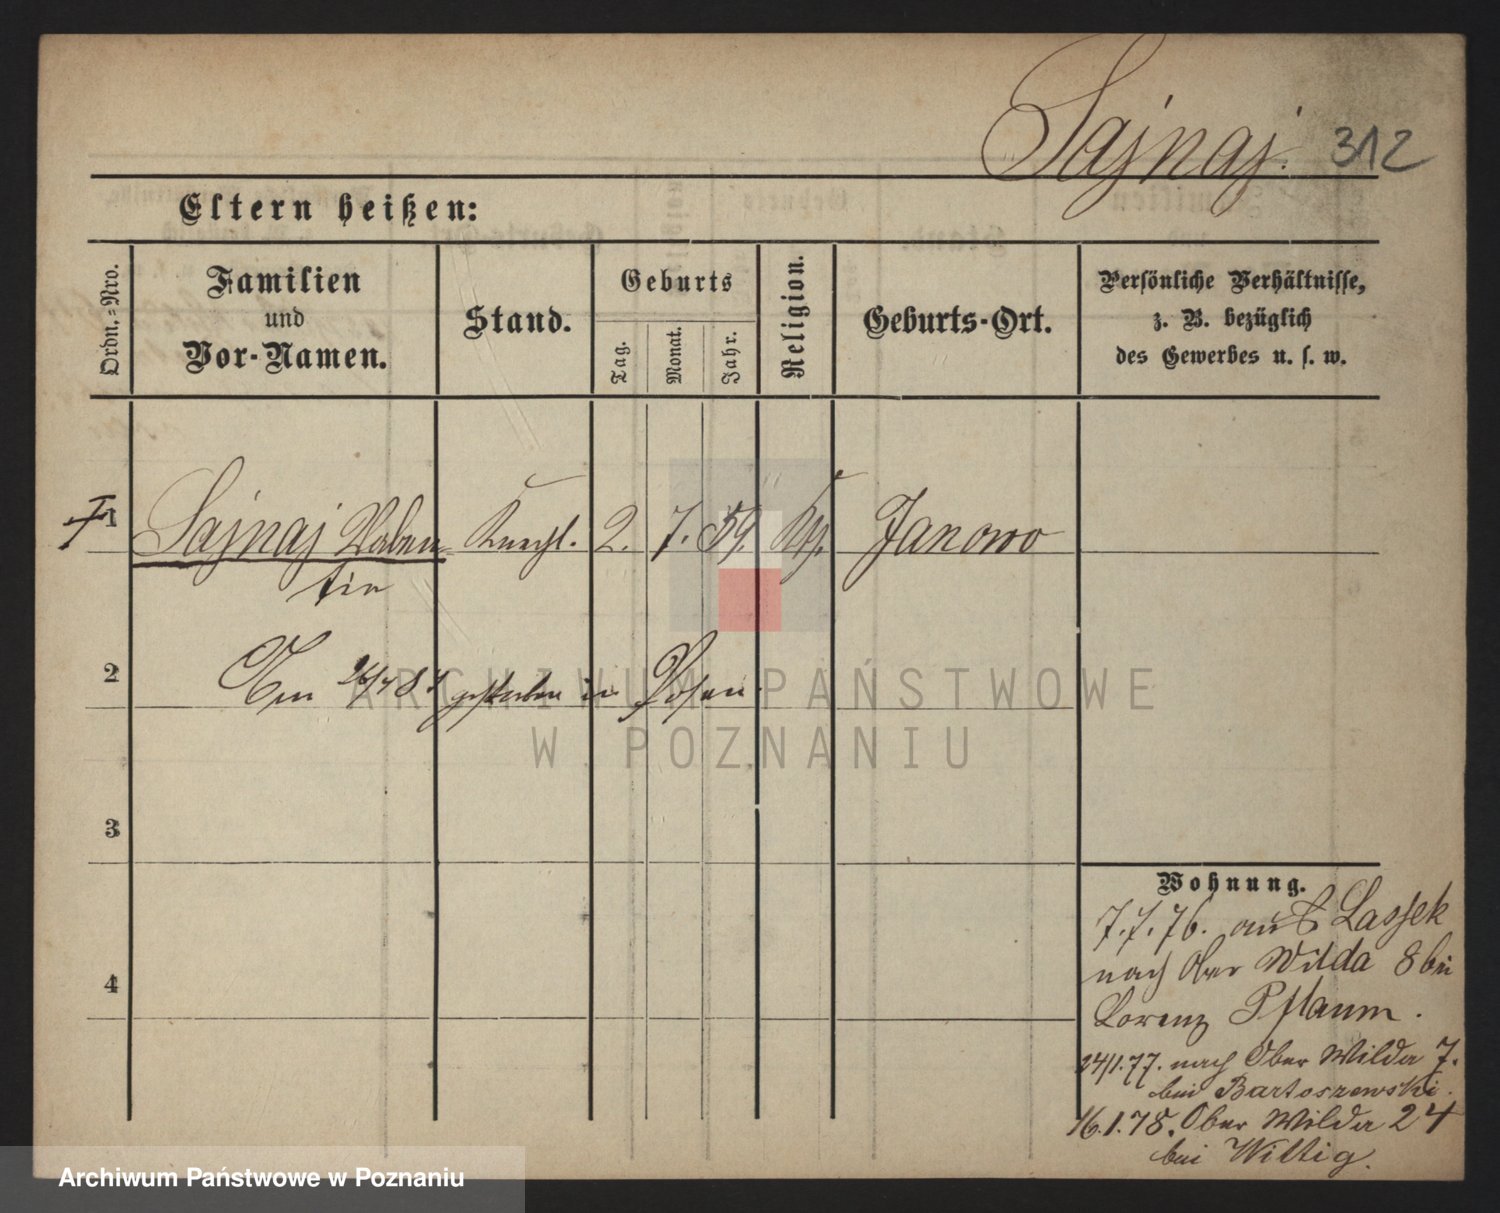 Sajnaj. 312
Eltern heißen:
Ordn.-Nro.
Familien
und
Vor-Namen.
Stand.
Geburts
Tag.
Monat.
Jahr.
Religion.
Geburts-Ort.
Persönliche Verhältnisse,
z. B. bezüglich
des Gewerbes u. s. w.
1 Sajnaj Valen= Knecht. 2. 7. 59. Kth. Janowo
tin
2 Am 26/4 84 gestorben in Posen
ARCHIWUM PAŃSTWOWE
W POZNANIU
3
4
Wohnung.
7.7.76. aus Lassek
nach Ober Wilda 8 bei
Lorenz Pflaum.
24/1.77. nach Ober Wilda 7.
bei Bartoszewski.
16.1.78. Ober Wilda 24
bei Wittig.
Archiwum Państwowe w Poznaniu